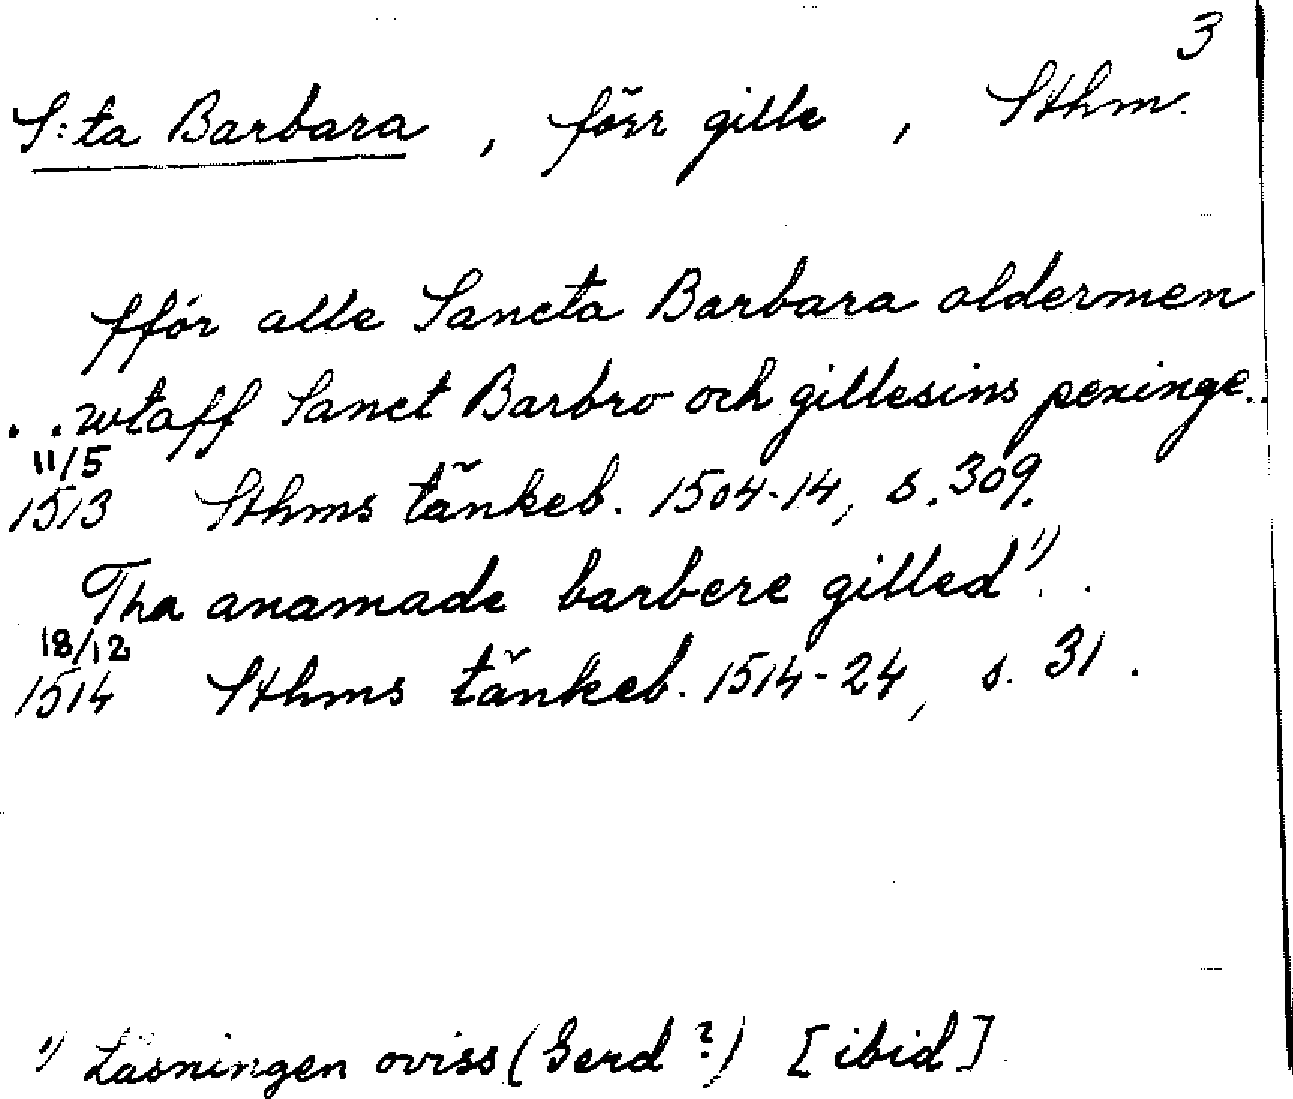 3
S:ta Barbara , förr gille , Sthm.
fför alle Sancta Barbara oldermen
. . wtaff Sanct Barbro och gillesins peninge..
11/5
1513 Sthms tänkeb. 1504-14, s. 309.
Tha anamade barbere gilled 1) . .
18/12
1514 Sthms tänkeb. 1514-24, s. 31.
1) Läsningen oviss (Gerd?) [ibid]